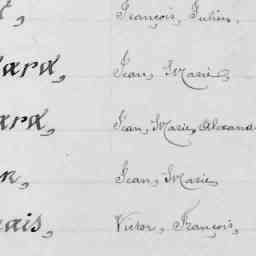 François, Julien,
ard, Jean, Marie,
ard, Jean, Marie, Alexand
n, Jean, Marie,
ais, Victor, François,